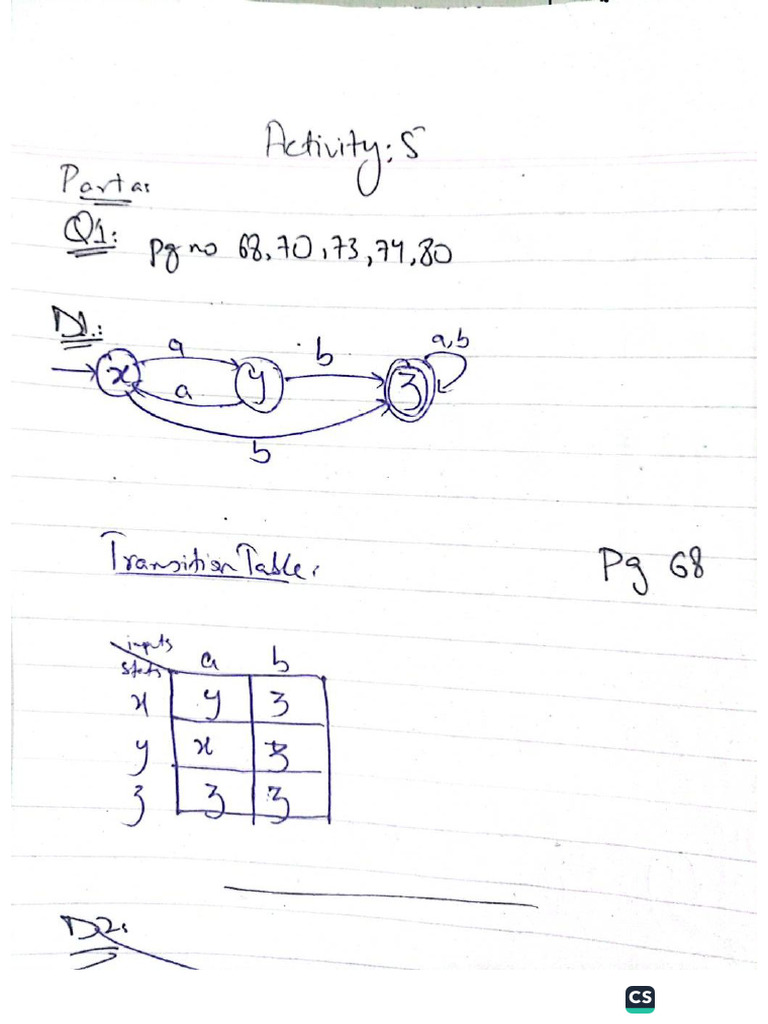 Activity: 5
Part a:
Q1: Pg no 68, 70, 73, 74, 80
D1:
a
b
a,b
x
y
z
a
b
Transition Table:
Pg 68
inputs
states
a b
x y z
y x z
z z z
D2:
CS